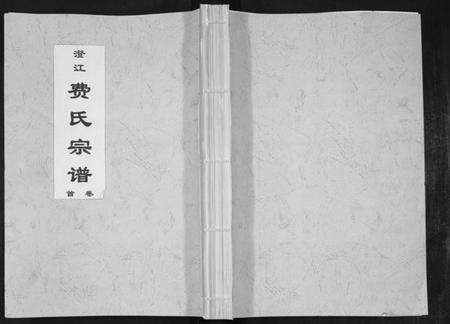 澄江
费氏宗谱
首卷